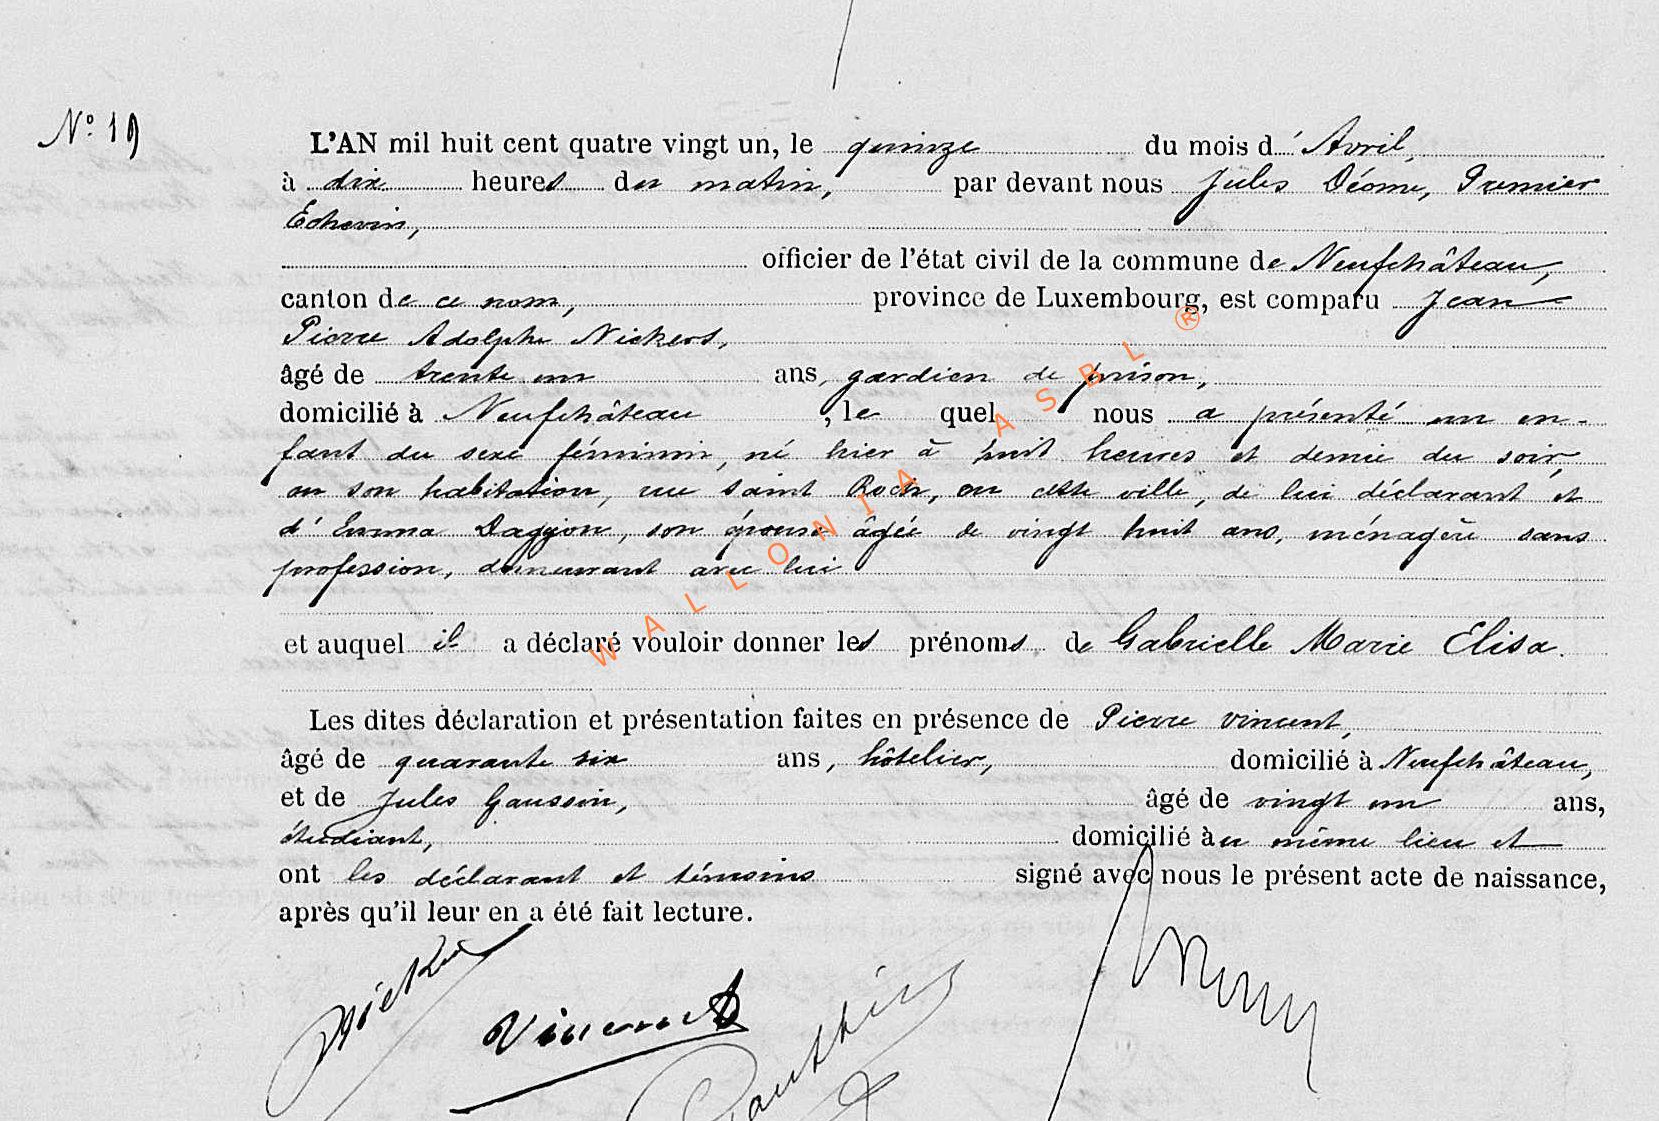 N° 19
L'AN mil huit cent quatre vingt un, le quinze du mois d'Avril,
à dix heures du matin, par devant nous Jules Déome, Premier
Echevin,
officier de l'état civil de la commune de Neufchâteau,
canton de ce nom, province de Luxembourg, est comparu Jean
Pierre Adolphe Nickers,
âgé de trente un ans, gardien de prison,
domicilié à Neufchâteau, le quel nous a présenté un en-
fant du sexe féminin, né hier à huit heures et demie du soir,
en son habitation, rue Saint Roch, en cette ville, de lui déclarant et
d'Emma son épouse âgée de vingt huit ans, ménagère sans
profession, demeurant avec lui
et auquel il a déclaré vouloir donner les prénoms de Gabrielle Marie Elisa.
Les dites déclaration et présentation faites en présence de Pierre Vincent,
âgé de quarante six ans, hôtelier, domicilié à Neufchâteau,
et de Jules Gaussin, âgé de vingt un ans,
étudiant, domicilié au même lieu et
ont les déclarant et témoins signé avec nous le présent acte de naissance,
après qu'il leur en a été fait lecture.
Vincent
WALLONIA ASBL ®